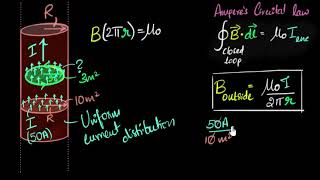 R,
I
?
3m²
10m²
I
(50A)
Uniform
current distribution
B(2πr) = μ₀
Ampere's Circuital law
∮ B⃗ · dl⃗ = μ₀ I enc
closed
loop
B outside = μ₀ I / 2πr
50A
10 m²